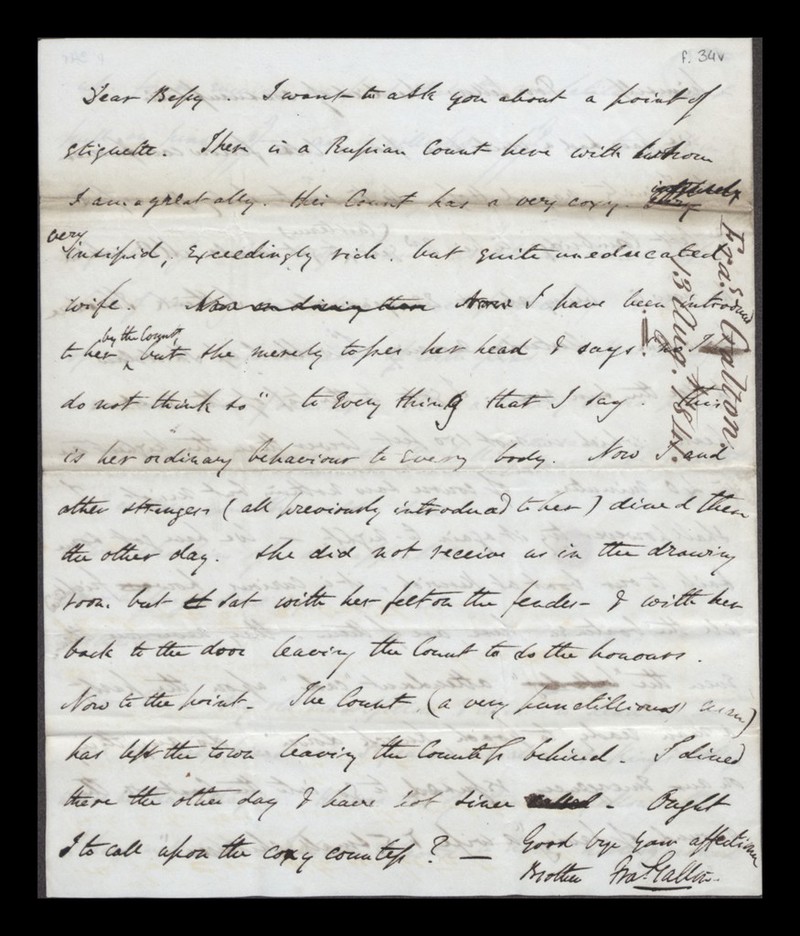 f. 34v
Dear Bessy. I want to ask you about a point of
etiquette. There is a Russian Count here with whom
I am a great ally. this Count has a very coxy.
very
insipid, exceedingly rich. but quite uneducated
wife. Now on dining there Now I have been introduced
by the Count
to her but she merely tosses her head & says I
do not think so" to every thing that I say. This
is her ordinary behaviour to every body. Now I and
other strangers (all previously introduced to her) dined there
the other day. She did not receive us in the drawing
room. but sat with her feet on the fender - & with her
back to the door leaving the Count to do the honours.
Now to the point - The Count, (a very punctilious man)
has left the town leaving the Countess behind - I dined
there the other day & have not since called - Ought
I to call upon the coxy countess? — Good bye your affectionate
Brother Fras Galton.
Fras Galton
13 Aug. 1841.